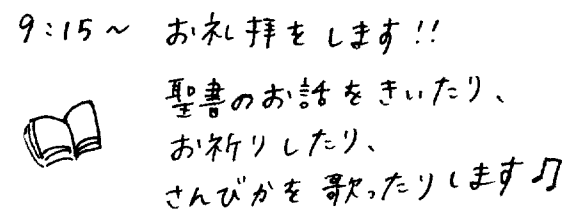 9:15〜 お礼拝をします!!
聖書のお話をきいたり、
お祈りしたり、
さんびかを歌ったりします♫